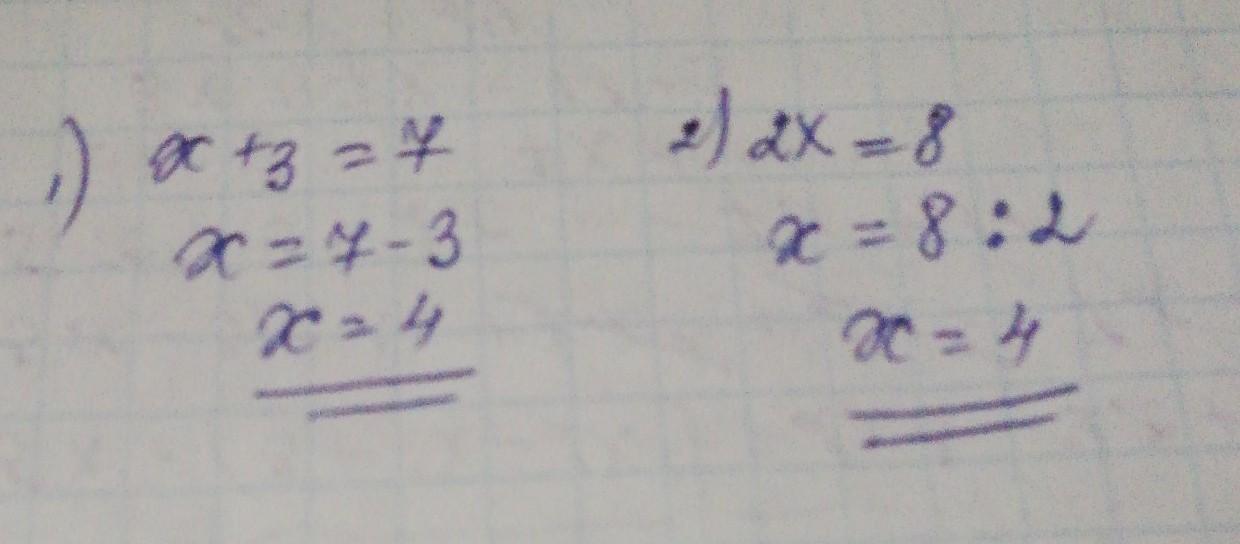 1) x + 3 = 7
x = 7 - 3
x = 4
2) 2x = 8
x = 8 : 2
x = 4